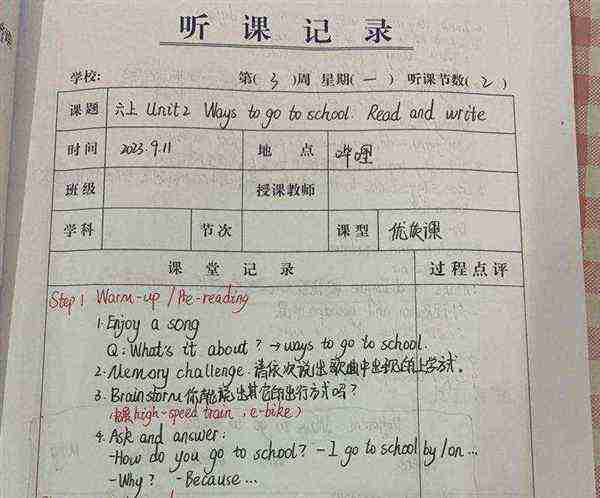 听课记录
学校: 第( 3 )周 星期( 一 ) 听课节数( 2 )
课题 六上 Unit2 Ways to go to school. Read and write
时间 2023.9.11 地点 哔哩
班级 授课教师
学科 节次 课型 优质课
课堂记录 过程点评
Step 1 Warm-up / Pre-reading
1. Enjoy a song
Q: What's it about? → ways to go to school.
2. Memory challenge. 请依次说出歌曲中出现的上学方式.
3. Brainstorm 你能说出其它的出行方式吗?
high-speed train, e-bike)
4. Ask and answer:
-How do you go to school? -I go to school by/on...
-Why? -Because...